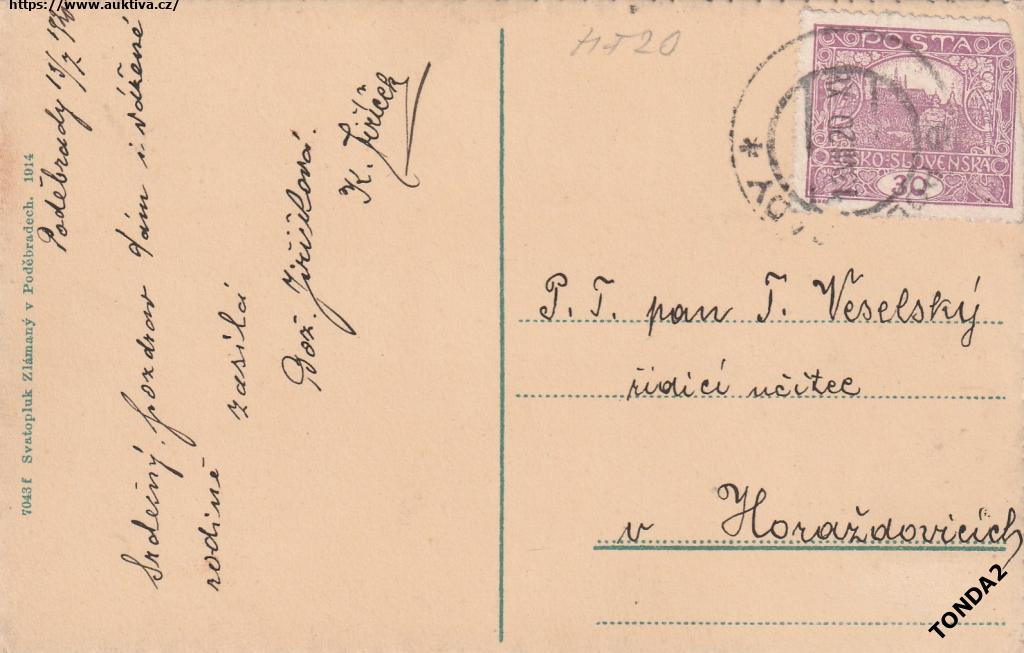 https://www.auktiva.cz/
Poděbrady 15/7 1920
Srdečný pozdrav Vám i vážené
rodině zasílá
Bož. Jiříčková.
K. Jiříček
7043 f Svatopluk Zlámaný v Poděbradech. 1914
HT20
POŠTA
ČESKO-SLOVENSKÁ
30
P. T. pan T. Veselský
řídící učitel
v Horažďovicích
TONDA2